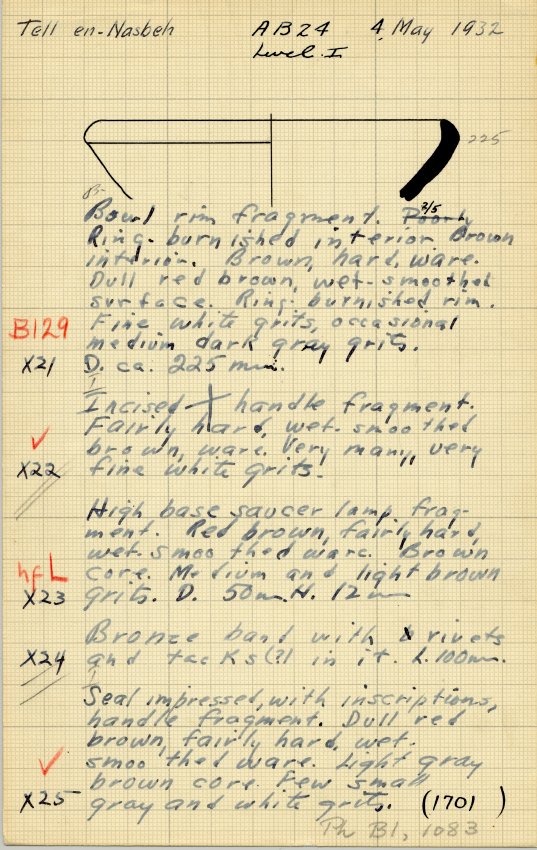 Tell en-Nasbeh AB24 4 May 1932
Level I
225
Bowl rim fragment. 2/5
Ring-burnished interior. Brown
interior. Brown, hard, ware.
Dull red brown, wet-smoothed
surface. Ring-burnished rim.
B129 Fine white grits, occasional
medium dark gray grits.
X21 D. ca. 225 mm.
Incised handle fragment.
Fairly hard, wet-smoothed
✓ brown, ware. Very many, very
X22 fine white grits.
High base saucer lamp frag-
ment. Red brown, fairly hard,
wet-smoothed ware. Brown
hfL core. Medium and light brown
X23 grits. D. 50m H. 12m
Bronze band with rivets
X24 and tacks(?) in it. L. 100m.
Seal impressed, with inscriptions,
handle fragment. Dull red
brown, fairly hard, wet-
smoothed ware. Light gray
✓ brown core. Few small
X25 gray and white grits. (1701)
Ph B1, 1083